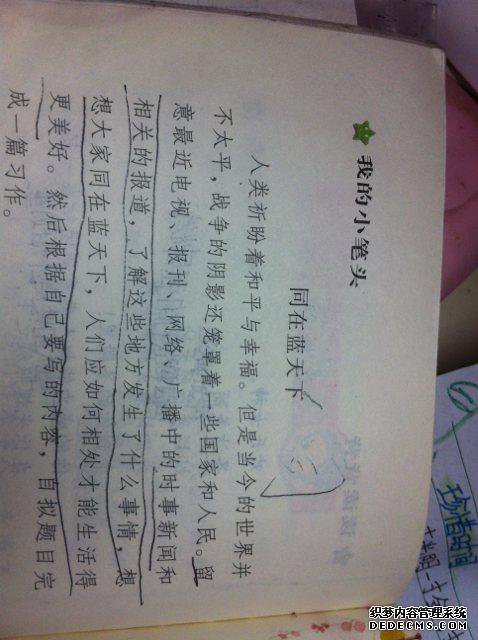 我的小笔头
同在蓝天下
人类祈盼着和平与幸福。但是当今的世界并
不太平，战争的阴影还笼罩着一些国家和人民。留
意最近电视、报刊、网络、广播中的时事新闻和
相关的报道，了解这些地方发生了什么事情，想
想大家同在蓝天下，人们应如何相处才能生活得
更美好。然后根据自己要写的内容，自拟题目完
成一篇习作。
珍惜时间
织梦内容管理系统
DEDECMS.COM